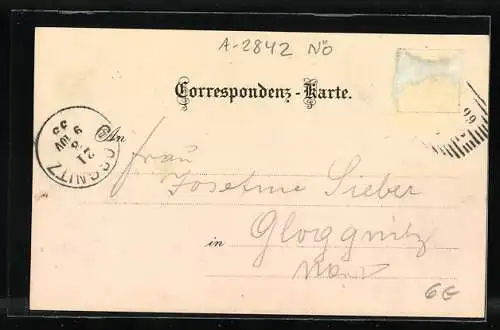 A-2842 NÖ
Correspondenz-Karte.
99
An Frau
Josefine Sieber
in Gloggnitz
6G